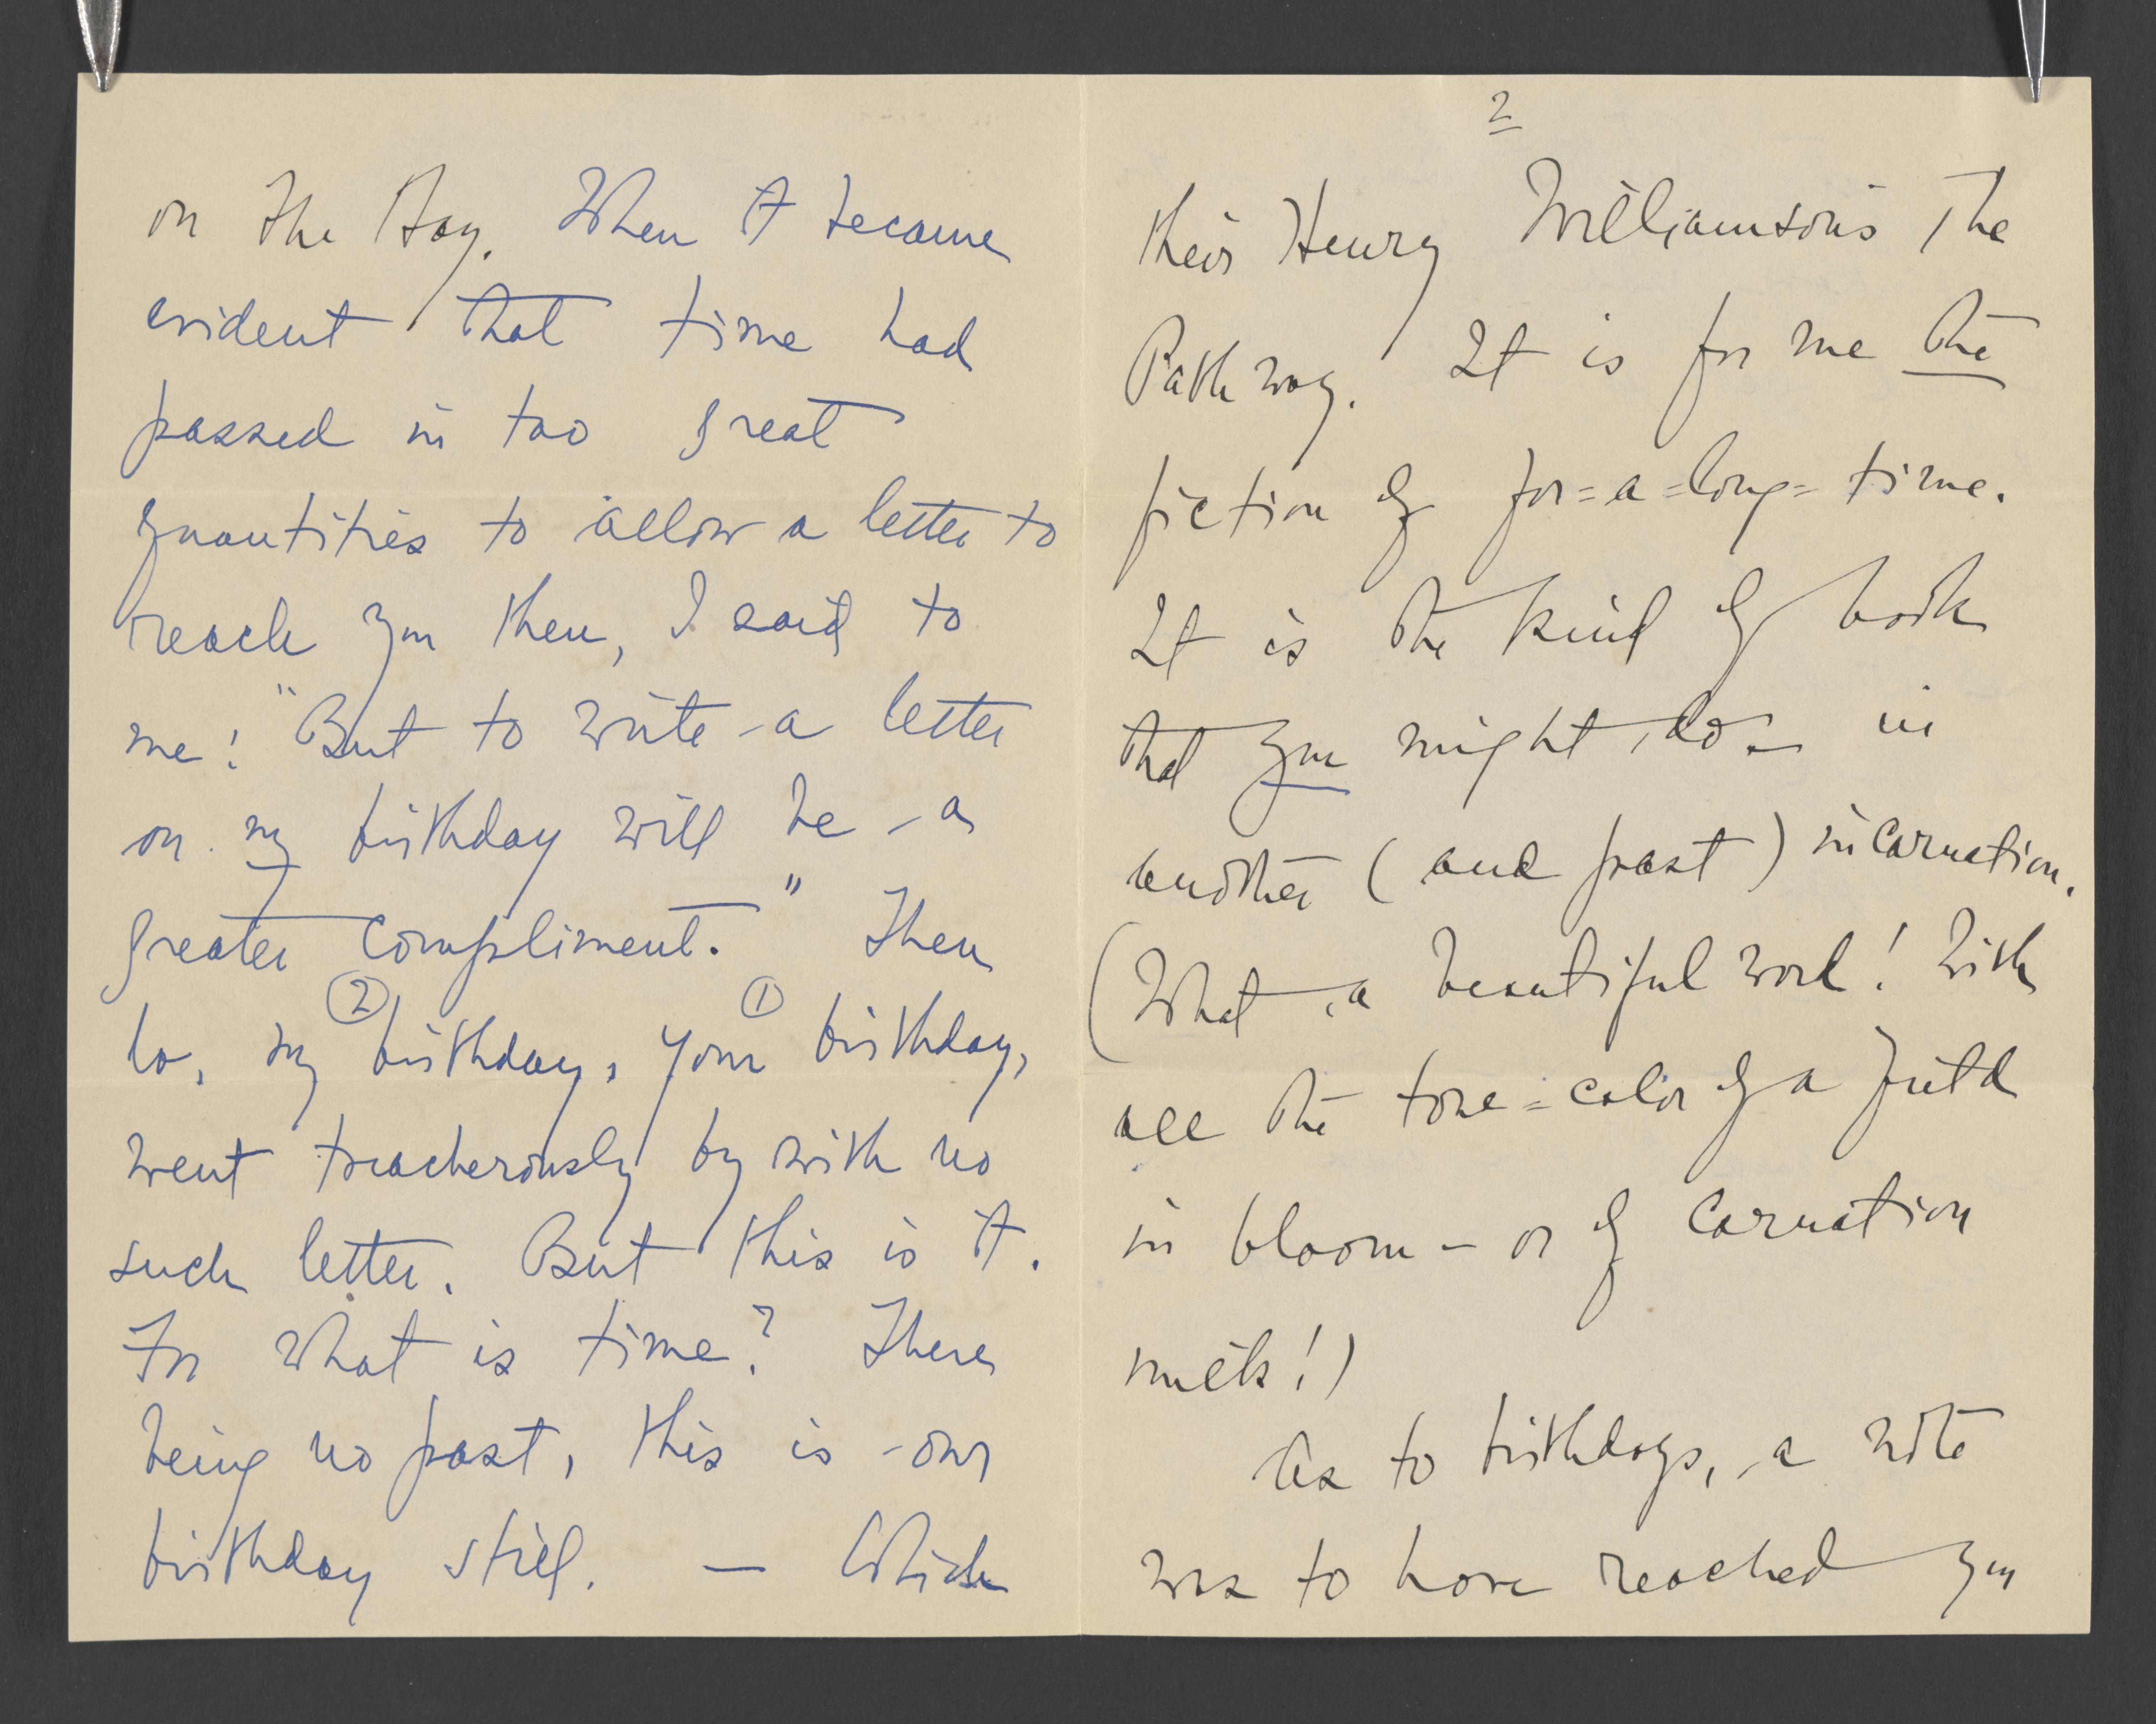 on the day. When it became
evident that time had
passed in too great
quantities to allow a letter to
reach you then, I said to
me: "But to write a letter
on my birthday will be a
greater compliment." Then
② ①
lo, my birthday, your birthday,
went treacherously by with no
such letter. But this is it.
For what is time? There
being no past, this is our
birthday still. — Which
2
their Henry Williamson's The
Pathway. It is for me the
fiction of for=a=long=time.
It is the kind of book
that you might do – in
another (and past) incarnation.
(What a beautiful word! With
all the tone=color of a field
in bloom – or of carnation
milk!)
As to birthdays, a note
was to have reached you